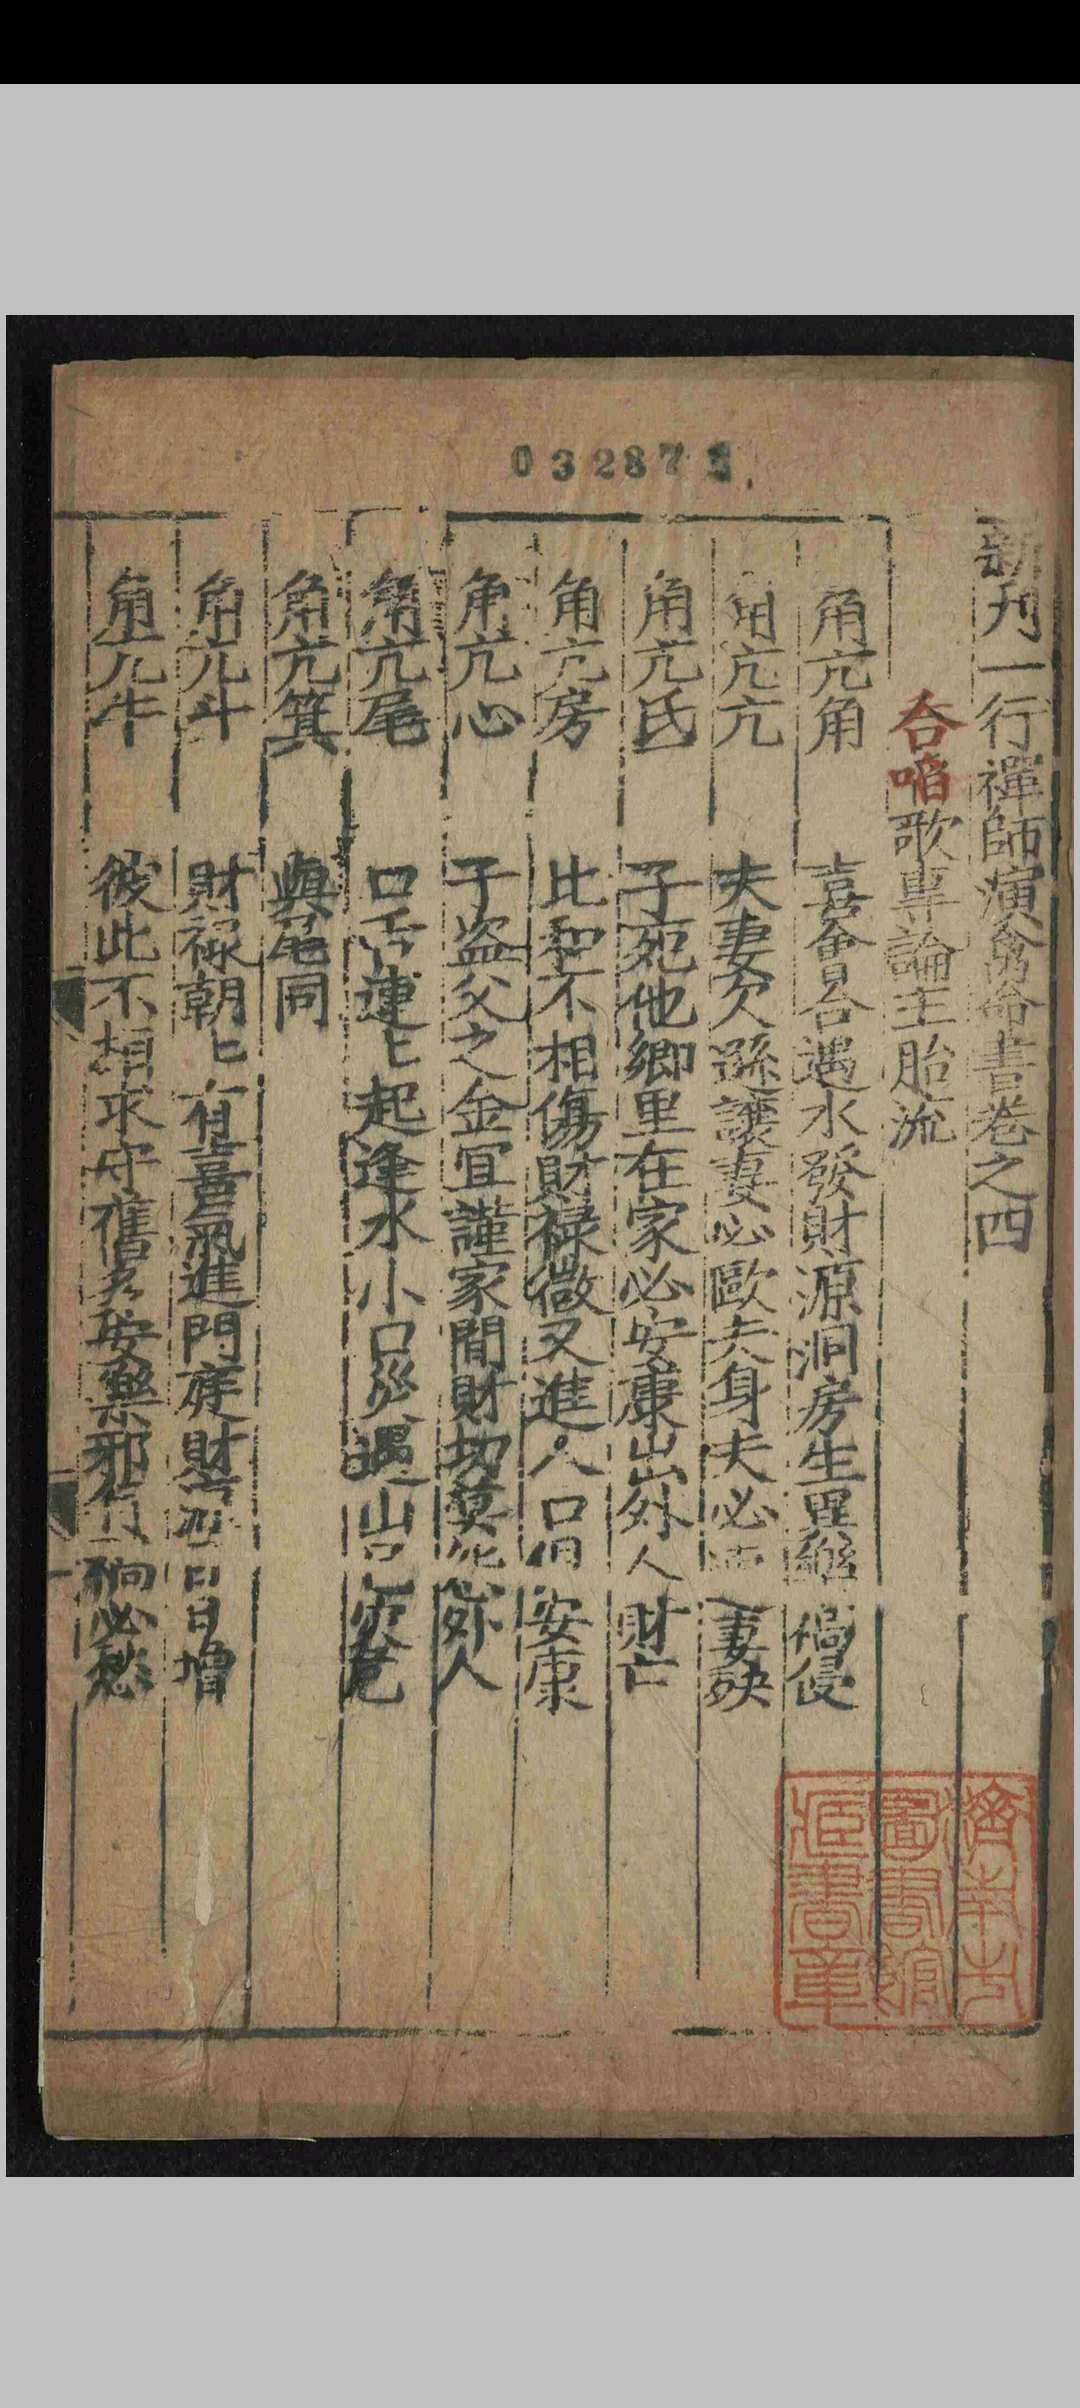 032873
新刋一行禪師演禽命書卷之四
合㗖歌專論主胎流
角亢角 喜會合遇水發財源洞房生異 禍侵
角亢亢 夫妻欠遜讓妻必歐夫身夫必 妻殃
角亢氐 子死他鄉里在家必安康出外人財亡
角亢房 比和不相傷財禄微又進人口 安康
角亢心 子盗父之金宜謹家間財切莫 外人
角亢尾 口舌連匕起逢水小口災遇 
角亢箕 與尾同
角亢斗 財禄朝匕有喜氣進門庭財 日日增
角亢牛 彼此不相求守舊多安樂邪 必愁
濟南市圖書館藏書章